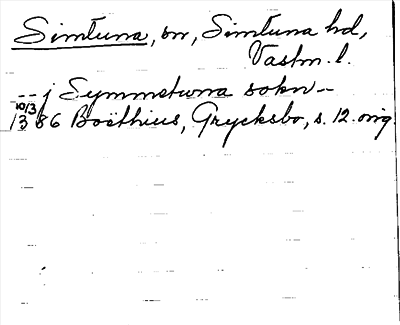 Simtuna, sn, Simtuna hd,
Västm. l.
-- j Symmetuna sokn --
10/3 1386 Boëthius, Grycksbo, s. 12. orig.